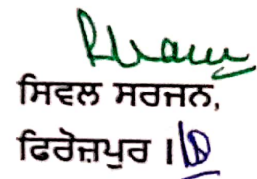 ਸਿਵਲ ਸਰਜਨ,
ਫਿਰੋਜ਼ਪੁਰ ।